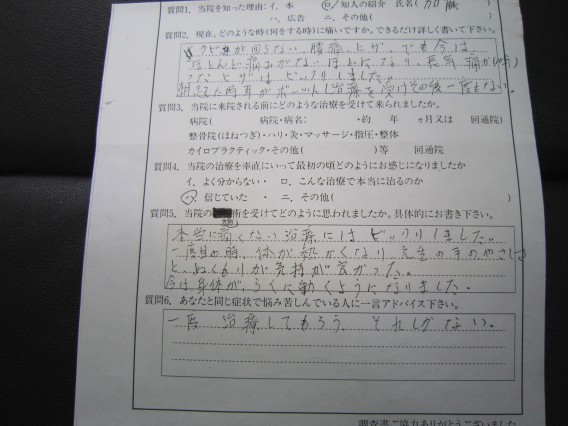 質問1. 当院を知った理由:イ. 本 ロ. 知人の紹介 氏名(加藤
ハ. 広告 ニ. その他(
質問2. 現在、どのような時(何をする時)に痛いですか。できるだけ詳しく書いて下さい。
クビが回らない、腰痛、ヒザ、でも今は、
ほとんど痛みがないほどになり、長年痛か(時)
ったヒザはビックリしました。
朝起きた時耳がボーッとし治療を受けその後一度もない。
質問3. 当院に来院される前にどのような治療を受けて来られましたか。
病院( 病院・病名: ・約 年 ヵ月又は 回通院)
整骨院(ほねつぎ)・ハリ・灸・マッサージ・指圧・整体
カイロプラクティック・その他( )等 回通院
質問4. 当院の治療を率直にいって最初の頃どのようにお感じになりましたか
イ. よく分からない・ ロ. こんな治療で本当に治るのか
ハ. 信じていた ・ ニ. その他( )
質問5. 当院の 術を受けてどのように思われましたか。具体的にお書き下さい。
本当に痛くない治療にはビックリしました。
一度目の時、体が熱くなり、先生の手のやさしさ
と、ぬくもりが気持が良かった。
今は身体が、らくに動くようになりました。
質問6. あなたと同じ症状で悩み苦しんでいる人に一言アドバイス下さい。
一度 治療してもらう、それしかない。
調査書ご協力ありがとうございました